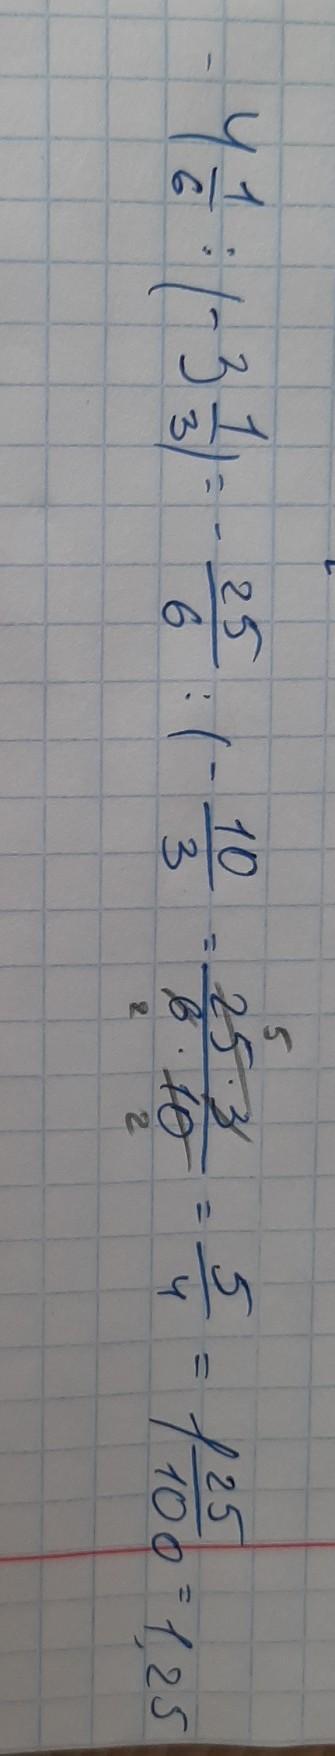 - 4 1/6 : (- 3 1/3) = - 25/6 : (- 10/3 = 25 · 3 / 6 · 10 5 2 2 = 5/4 = 1 25/100 = 1,25